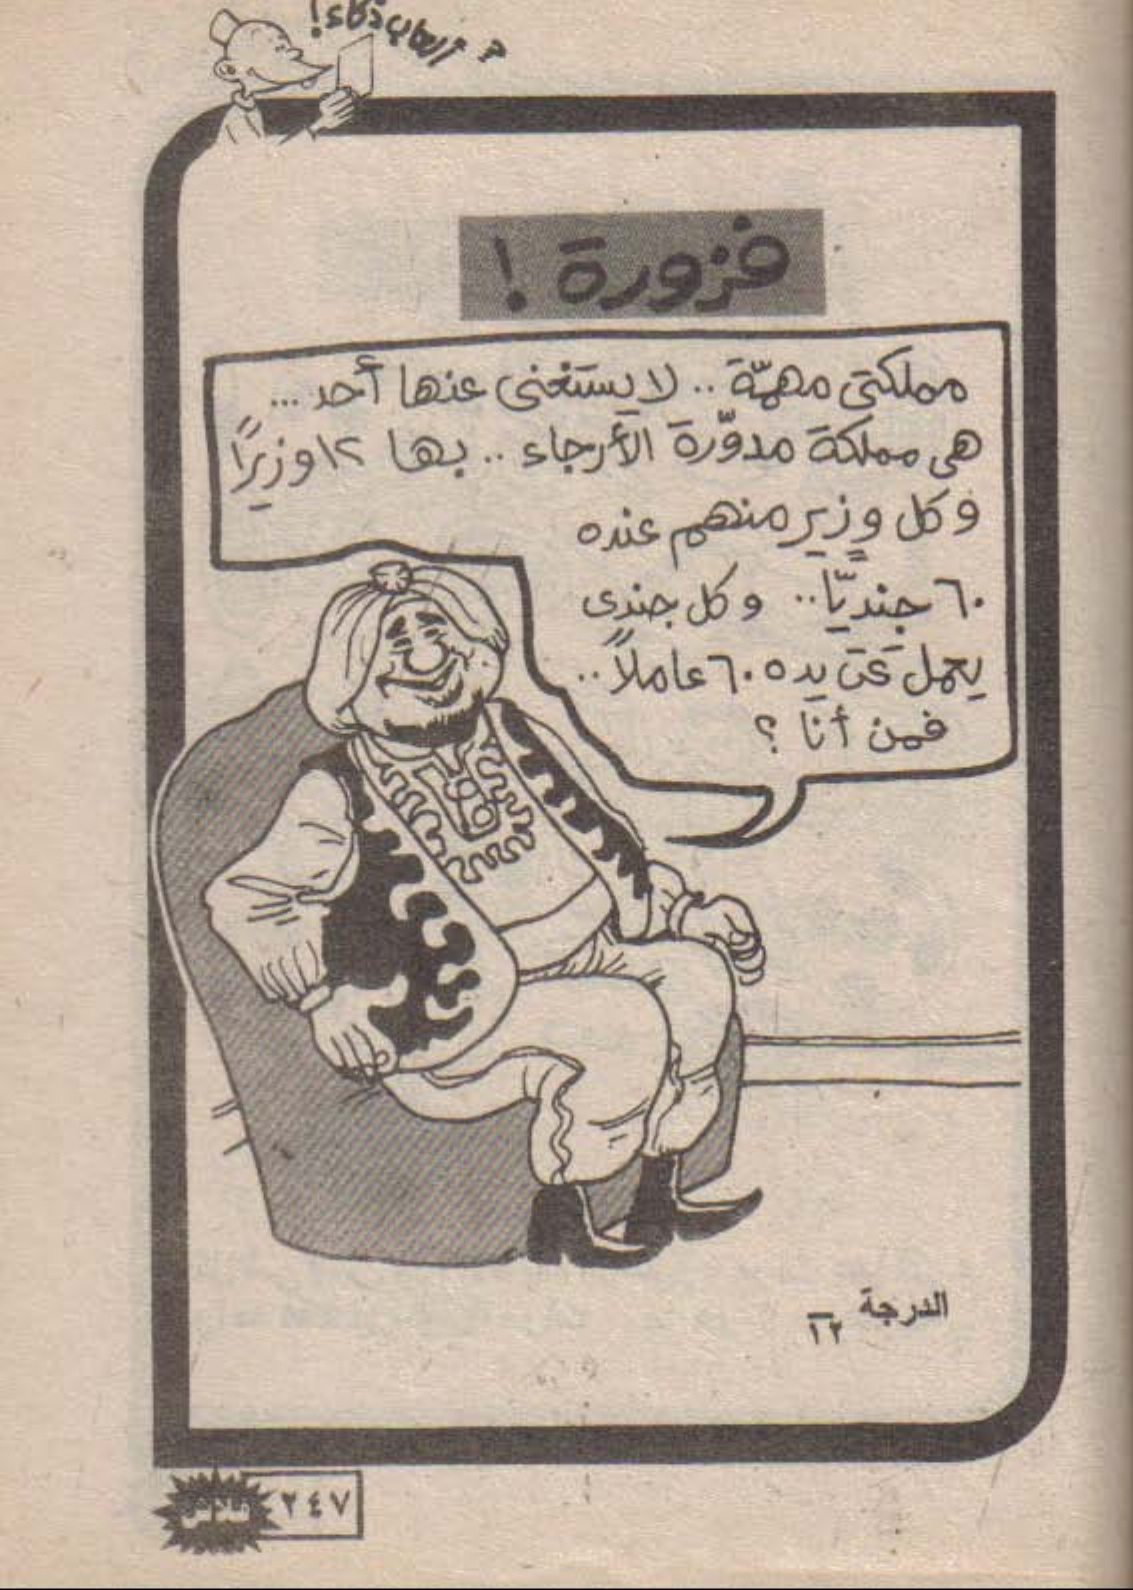 ألعاب ذكاء!
فزورة!
مملكتى مهمّة .. لا يستغنى عنها أحد ...
هى مملكة مدوّرة الأرجاء .. بها ١٢ وزيرًا
وكل وزير منهم عنده
٦٠ جنديًّا .. وكل جندى
يعمل تحت يده ٦٠ عاملاً ..
فمن أنا ؟
الدرجة
١٢
٢٤٧
فلاش